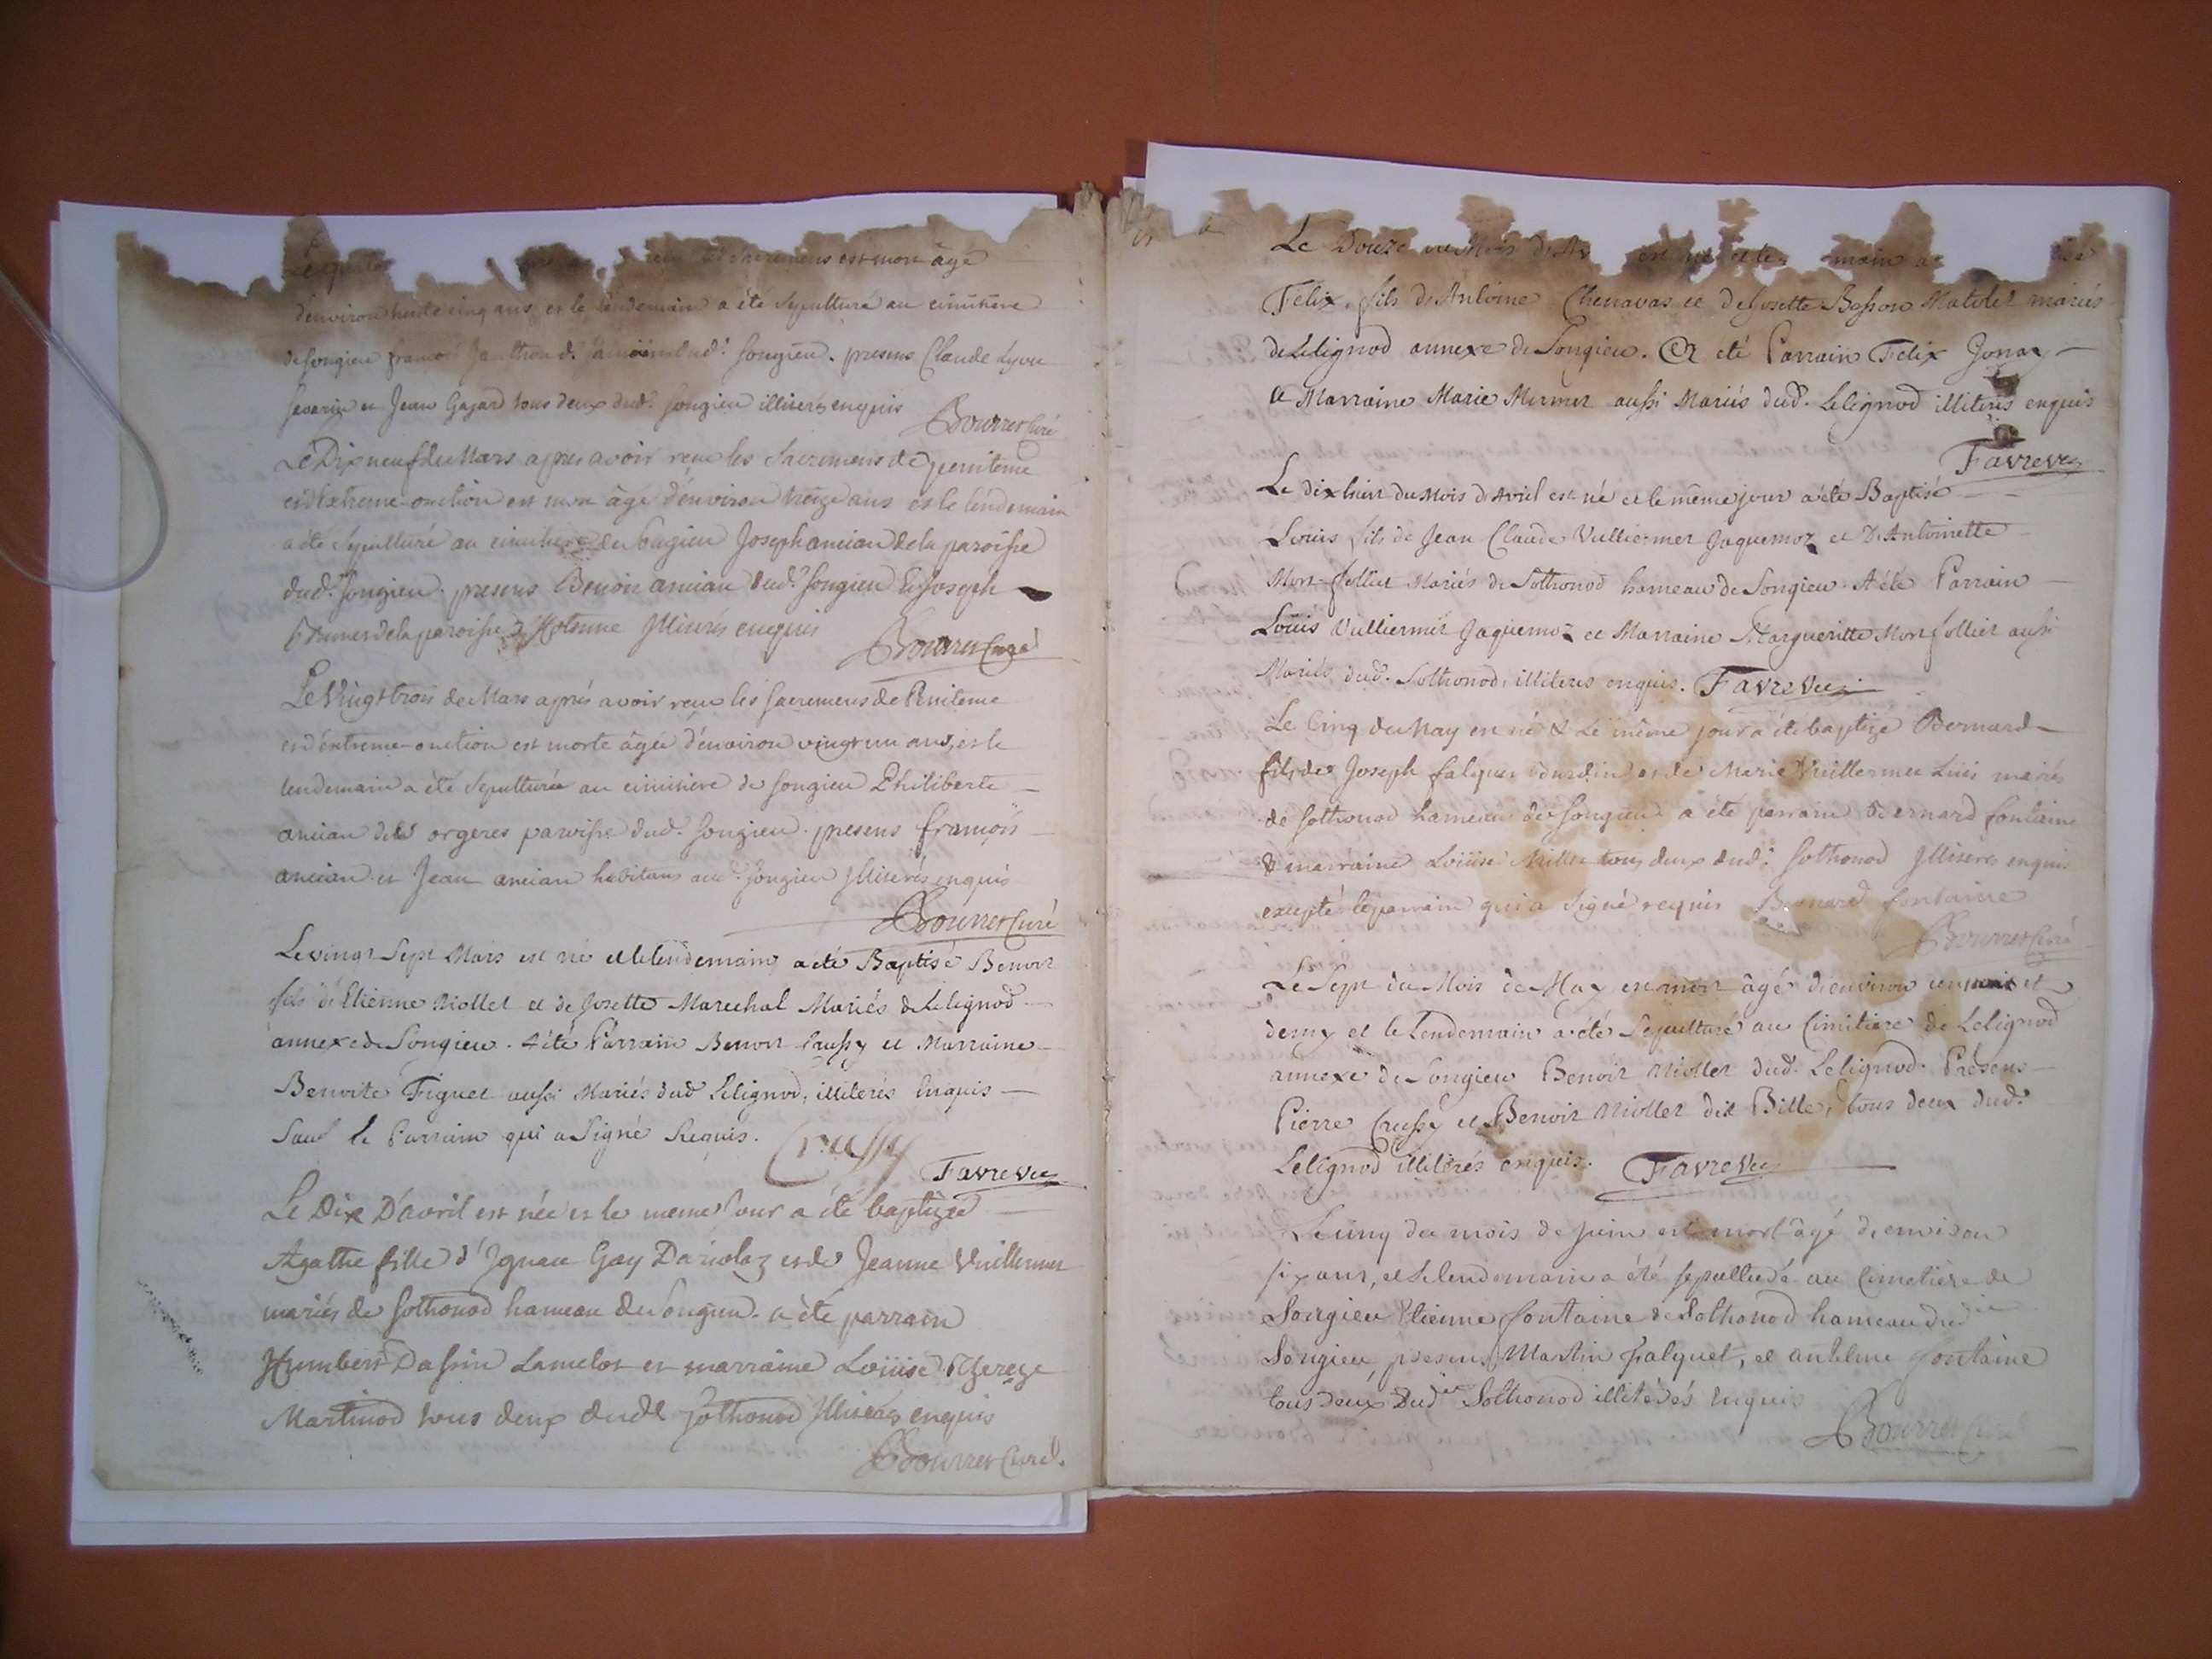 est mort âgé
d'environ trente cinq ans et le lendemain a été sepulturé au cimitiere
de songieu françois songieu. presens Claude
et Jean Gajard tous deux dud. songieu illiterés enquis
Bourrer Curé
Le Dix neuf de Mars apres avoir reçu les Sacremens de penitence
et d'extreme-onction est mort âgé d'environ treize ans et le lendemain
a été sepulturé au cimitiere de Songieu Joseph ancian de la paroisse
dud. songieu. presens Benoit ancian dud. songieu et Joseph
de la paroisse d'hotonne illiterés enquis
Bourrer Curé
Le Vingt trois de Mars aprés avoir reçu les sacremens de Penitence
et d'extreme-onction est morte âgée d'environ vingt un ans, et le
lendemain a été sepulturée au cimitiere de songieu Philiberte
ancian des orgeres paroisse dud. songieu. presens françois
ancian et Jean ancian habitans aud. songieu illiterés enquis
Bourrer Curé
Le vingt Sept Mars est né et le lendemain a été Baptisé Benoit
fils d'Etienne Niollet et de Josette Marechal Mariés de Lelignod
annexe de Songieu. A été Parrain Benoit Crussy et Marraine
Benoite Figuet aussi Mariés dud Lelignod, illiterés Enquis
Sauf le Parrain qui a Signé Requis.
Crussy
Favre vic
Le Dix D'avril est née et le meme Jour a été baptizée
Agathe fille d'Ignace Gay Dariolaz et de Jeanne Vuillermet
mariés de sothonod hameau de songieu. a été parrain
Humbert Dassin Lancelot et marraine Loüise Thereze
Martinod tous deux dudt sothonod illiterés enquis
Bourrer Curé.
Le Douze du Mois d'Av est né et le
Felix, fils d'Antoine Chenavas et de Josette Besson Matelet mariés
de Lelignod annexe de Songieu. A été Parrain Felix Gonaz
et Marraine Marie Mermet aussi Mariés dud. Lelignod illiterés enquis
Favre vic
Le dix huit du Mois d'Avril est né et le même jour a été Baptisé
Louis, fils de Jean Claude Vulliermet Jaquemoz et d'Antoinette
Mont-follier Mariés de Sothonod hameau de Songieu. A été Parrain
Louis Vulliermet Jaquemoz et Marraine Margueritte Montfollier aussi
Mariés dud. Sothonod, illiterés enquis. Favre Vic
Le Cinq de May est né & Le même jour a été baptizé Bernard
fils de Joseph falquet Bourdin et de Marie Vuillermet Luis mariés
de sothonod hameau de songieu a été parrain Bernard fontaine
& marraine Loüise Millet tous deux dud. sothonod illiterés enquis
excepté le parrain qui a signé requis Bernard fontaine
Bourrer Curé
Le Sept du Mois de May est mort âgé d'environ un mois et
demy et le Lendemain a été Sepulturé au Cimitiere de Lelignod
annexe de Songieu Benoit Niollet dud. Lelignod. Présens
Pierre Crussy et Benoit Niollet dit Bille, tous deux dud.
Lelignod illiterés enquis. Favre Vic
Le cinq du mois de juin est mort âgé d'environ
six ans, et le lendemain a été sepulturé au cimetiere de
Songieu Etienne fontaine de Sothonod hameau dud
Songieu, presens Martin falquet, et antelme fontaine
tous deux Dud Sothonod illiterés enquis
Bourrer